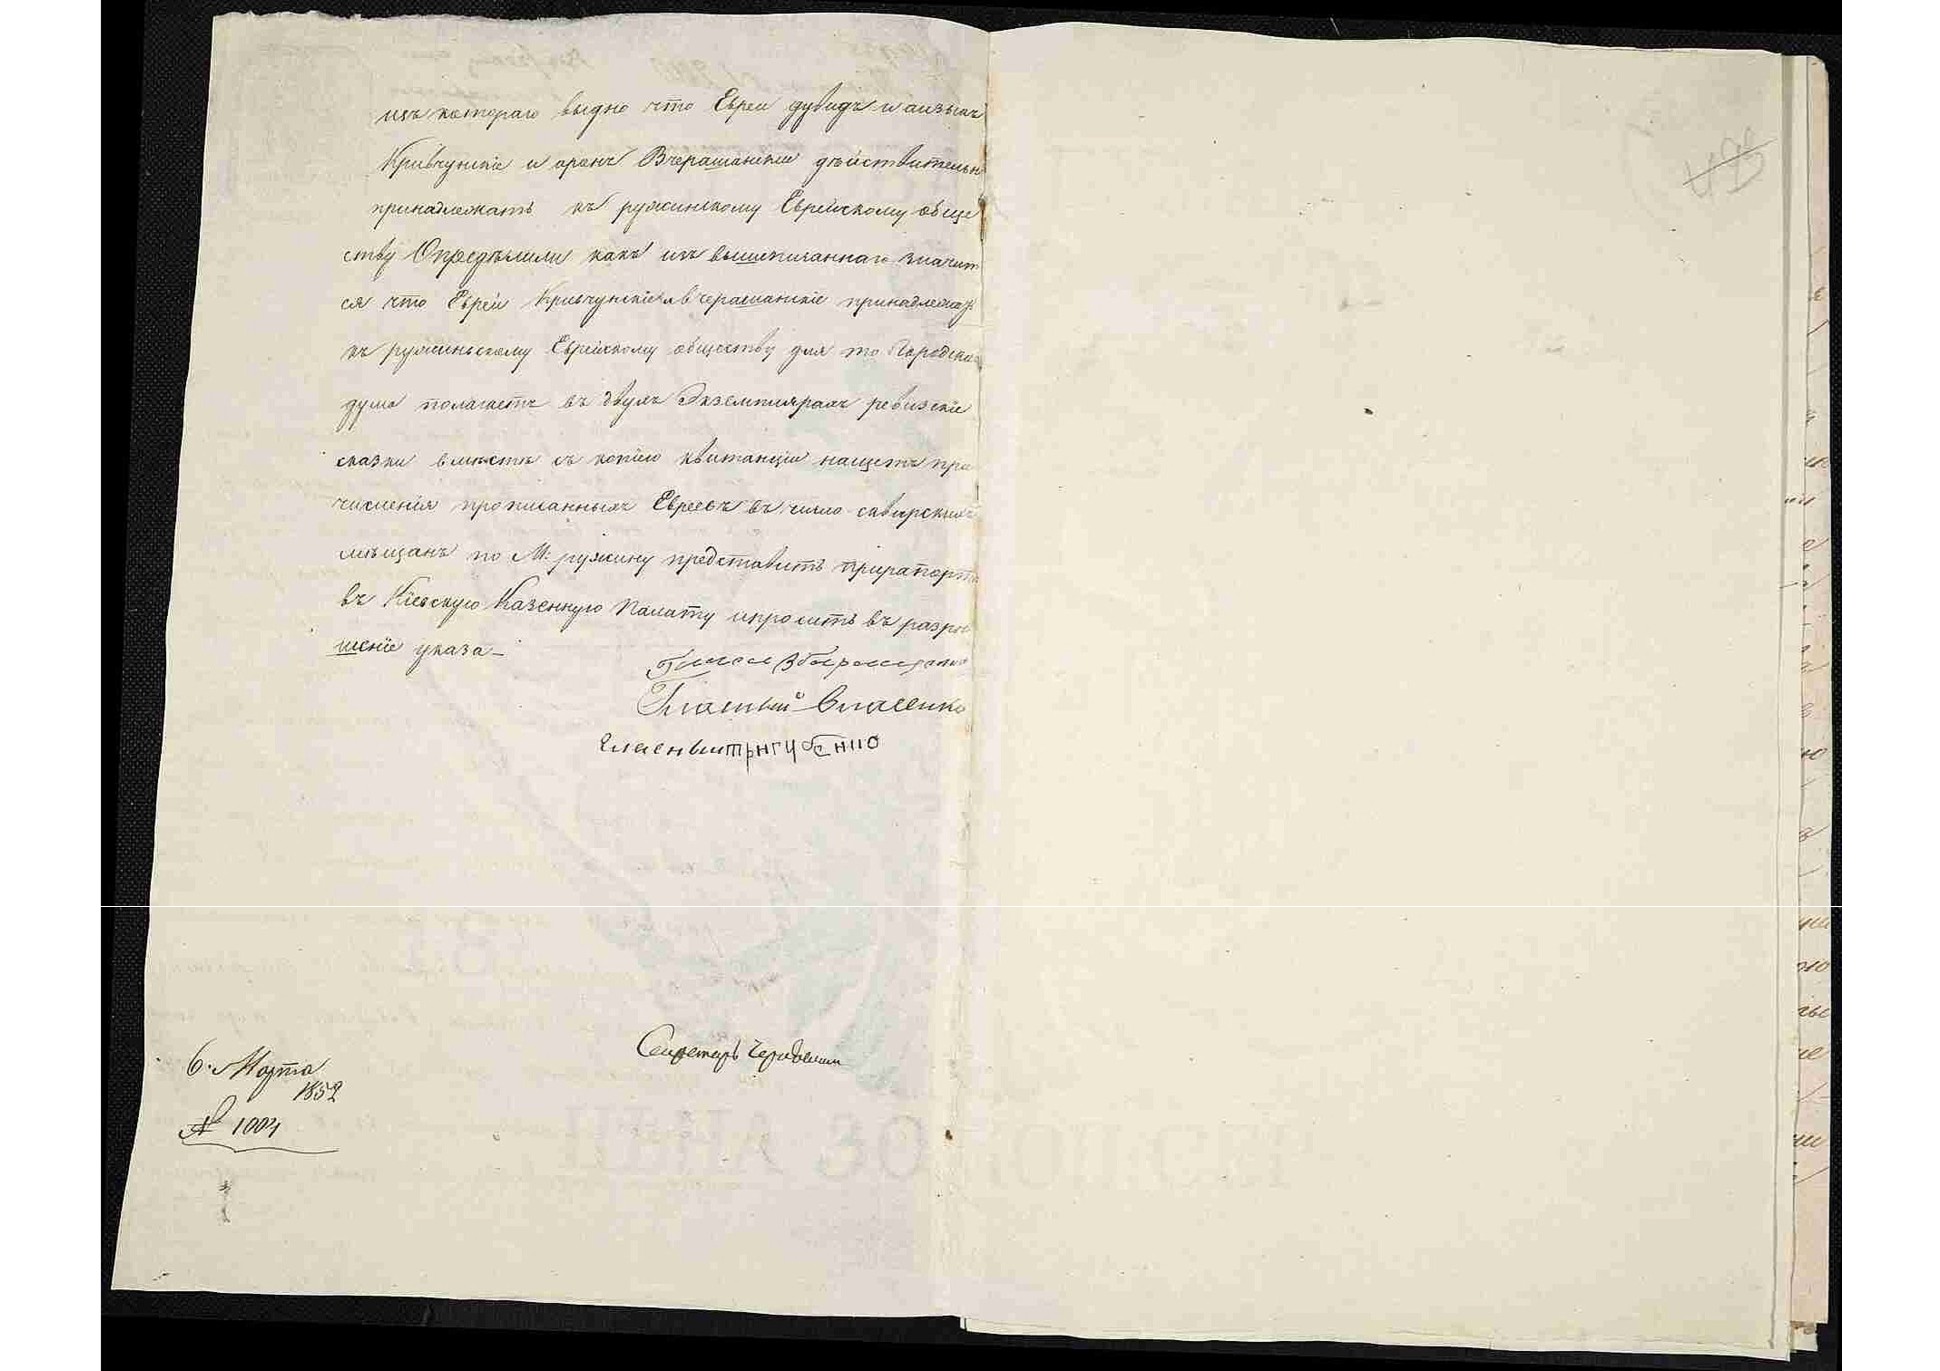 изъ котораго выдно что Евреи дувидъ и аизыкъ
Кривчунскіе и аронъ Вчерашанскии дѣйствительн
принадлежатъ къ ружинскому Еврейскому обще
ству Опредѣлили какъ изъ вышеписаннаго значит
ся что Евреи Кривчунскіе и вчерашанскіе принадлежа
къ ружиньскому Еврейскому обществу для то Городская
дума полагаетъ въ двухъ Экземплярахъ ревизскіе
сказки вмѣстѣ съ копіею квитанціи нащетъ при
численія прописанныхъ Евреевъ въ число сквирскихъ
мѣщанъ по М: ружину представить прирапортѣ
въ Кіевскую Казенную Палату ипросить въ разрѣ
шеніе указа
Гласный Власенко
Секретарь
6. Марта
1852
№ 1004
ЦѢНА 30 КОП. СЕР.